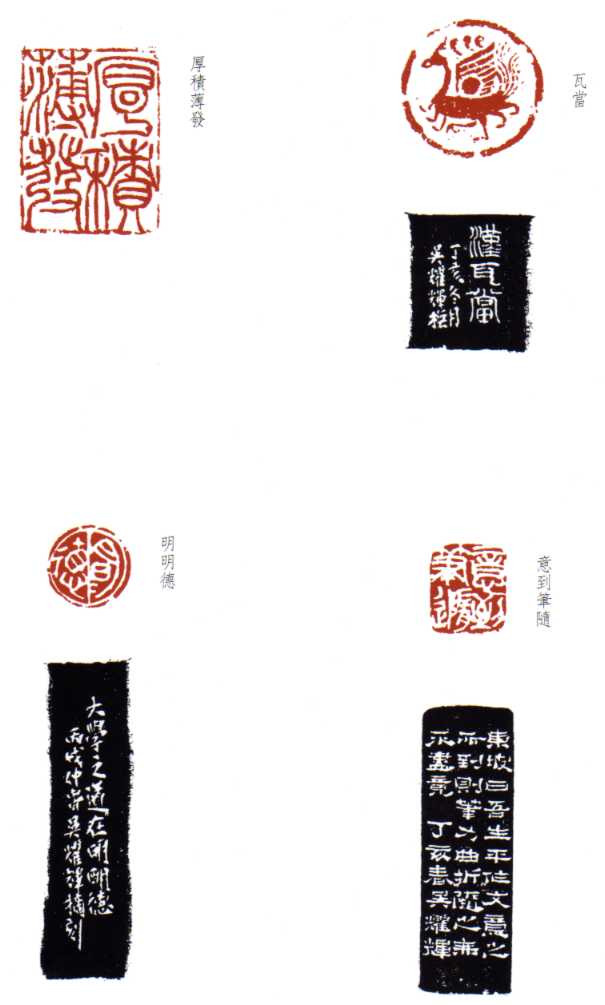 厚積薄發
厚積
薄發
瓦當
漢瓦當
丁亥冬月
吳耀輝
明明德
大學之道在明明德
丙戌仲
吳耀輝
刻
意到筆隨
東坡曰吾生平作文意之
所到則筆力曲折隨之無
不盡意 丁亥春吳耀輝